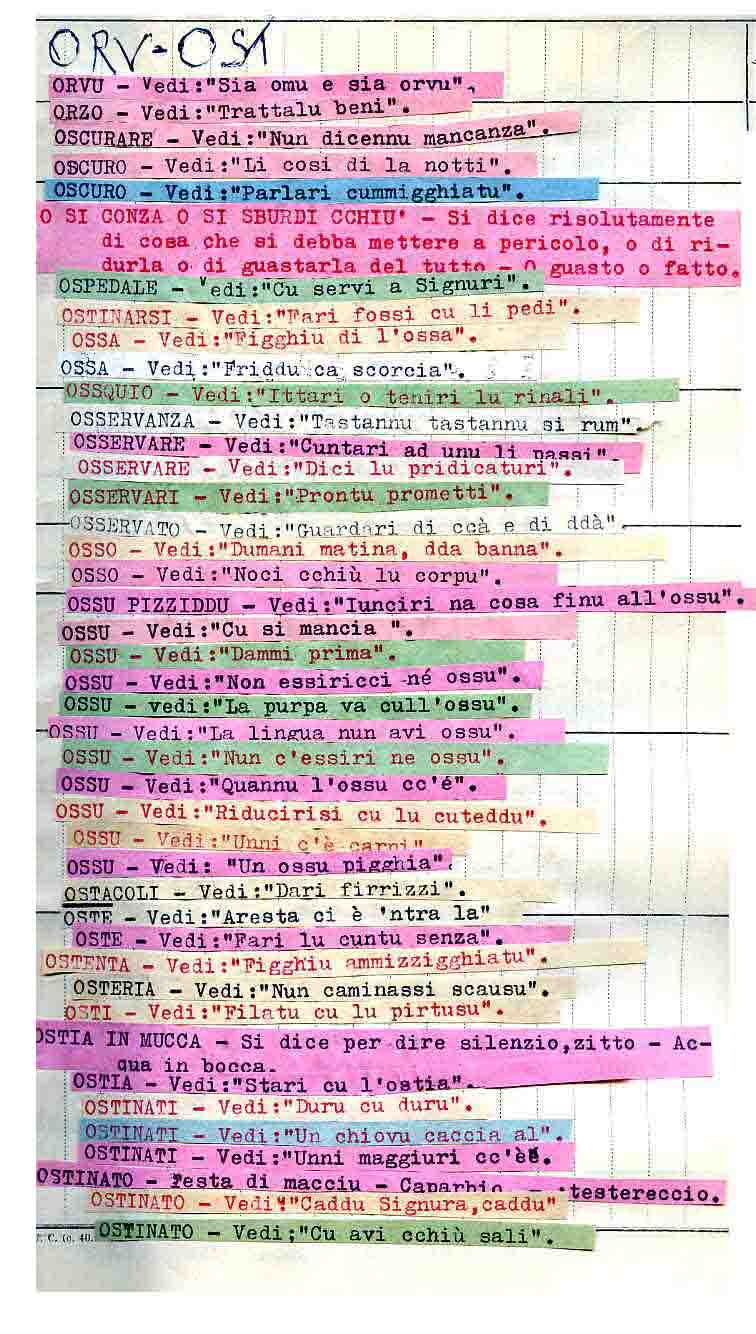 ORV-OST
ORVU - Vedi:"Sia omu e sia orvu".
ORZO - Vedi:"Trattalu beni".
OSCURARE - Vedi:"Nun dicennu mancanza".
OSCURO - Vedi:"Li cosi di la notti".
OSCURO - Vedi:"Parlari cummigghiatu".
O SI CONZA O SI SBURDI CCHIU' - Si dice risolutamente
di cosa che si debba mettere a pericolo, o di ri-
durla o di guastarla del tutto - O guasto o fatto.
OSPEDALE - Vedi:"Cu servi a Signuri".
OSTINARSI - Vedi:"Fari fossi cu li pedi".
OSSA - Vedi:"Figghiu di l'ossa".
OSSA - Vedi:"Friddu ca scorcia".
OSSQUIO - Vedi:"Ittari o teniri lu rinali".
OSSERVANZA - Vedi:"Tastannu tastannu si rum".
OSSERVARE - Vedi:"Cuntari ad unu li passi"
OSSERVARE - Vedi:"Dici lu pridicaturi".
OSSERVARI - Vedi:"Prontu prometti".
OSSERVATO - Vedi:"Guardari di ccà e di ddà".
OSSO - Vedi:"Dumani matina, dda banna".
OSSO - Vedi:"Noci cchiù lu corpu".
OSSU PIZZIDDU - Vedi:"Iunciri na cosa finu all'ossu".
OSSU - Vedi:"Cu si mancia ".
OSSU - Vedi:"Dammi prima".
OSSU - Vedi:"Non essiricci né ossu".
OSSU - vedi:"La purpa va cull'ossu".
OSSU - Vedi:"La lingua nun avi ossu".
OSSU - Vedi:"Nun c'essiri ne ossu".
OSSU - Vedi:"Quannu l'ossu cc'é".
OSSU - Vedi:"Riducirisi cu lu cuteddu".
OSSU - Vedi:"Unni c'è carni"
OSSU - Vedi: "Un ossu pigghia".
OSTACOLI - Vedi:"Dari firrizzi".
OSTE - Vedi:"Aresta ci è 'ntra la"
OSTE - Vedi:"Fari lu cuntu senza".
OSTENTA - Vedi:"Figghiu ammizzigghiatu".
OSTERIA - Vedi:"Nun caminassi scausu".
OSTI - Vedi:"Filatu cu lu pirtusu".
OSTIA IN MUCCA - Si dice per dire silenzio,zitto - Ac-
qua in bocca.
OSTIA - Vedi:"Stari cu l'ostia".
OSTINATI - Vedi:"Duru cu duru".
OSTINATI - Vedi:"Un chiovu caccia al".
OSTINATI - Vedi:"Unni maggiuri cc'è".
OSTINATO - Testa di macciu - Caparbio - testereccio.
OSTINATO - Vedi:"Caddu Signura,caddu"
OSTINATO - Vedi;"Cu avi cchiù sali".